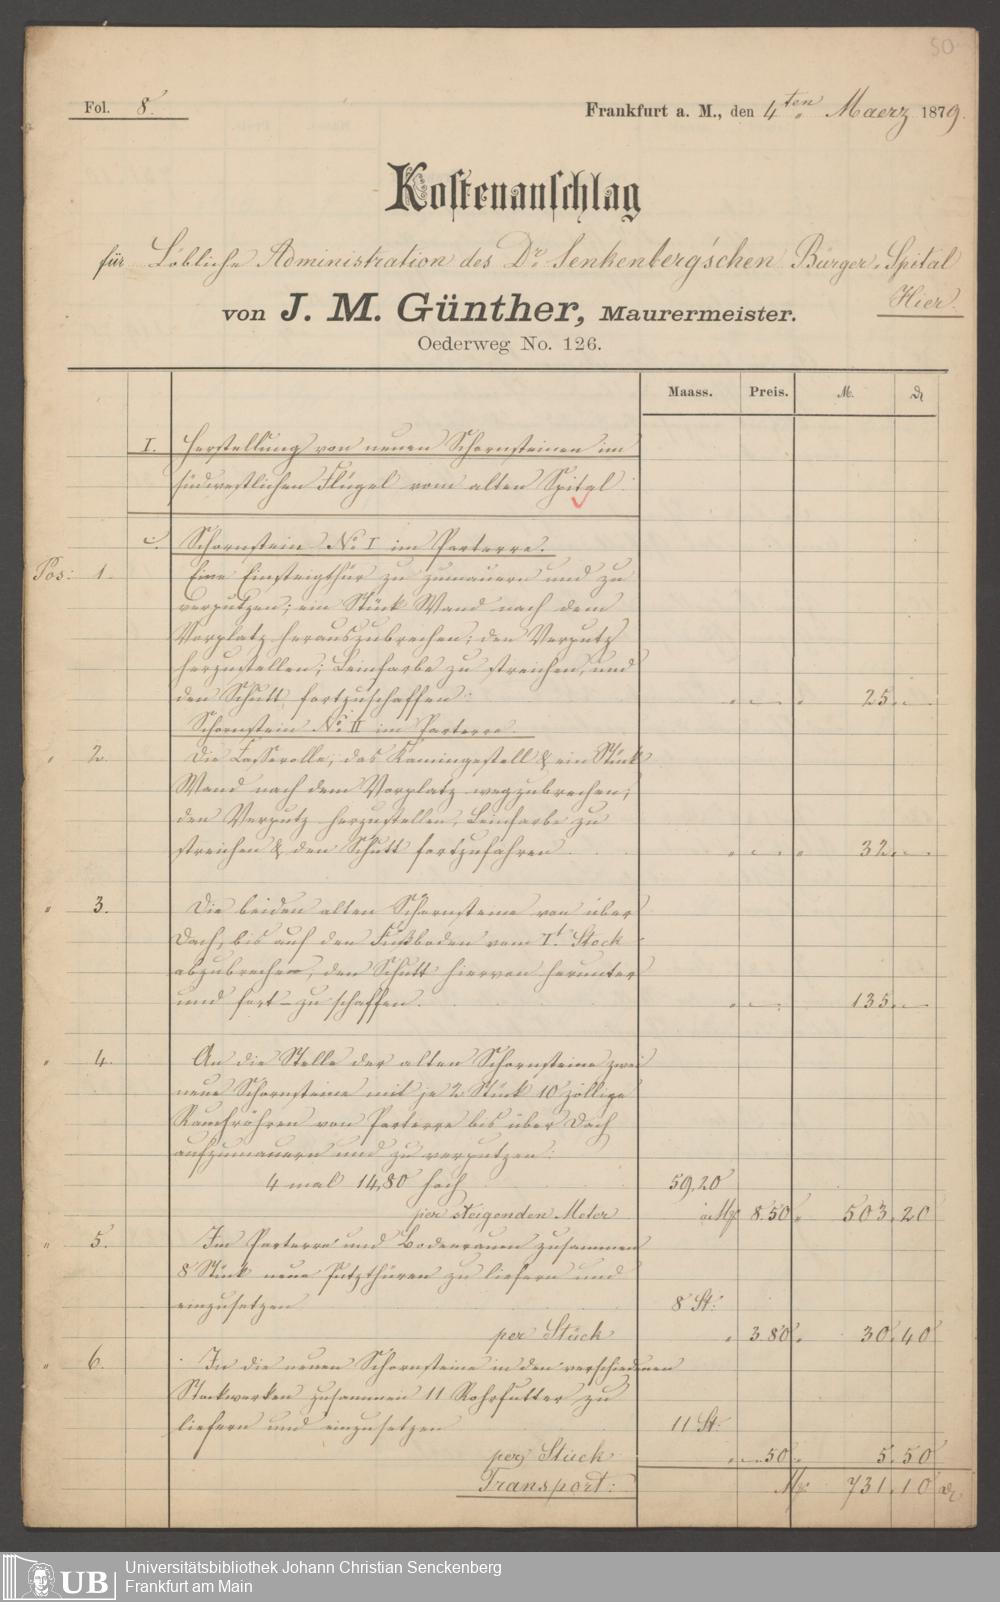 50
Fol. 8.
Frankfurt a. M., den 4ten Maerz 1879.
Kostenanschlag
für Löbliche Administration des Dr. Senkenberg'schen Bürger-Spital
Hier.
von J. M. Günther, Maurermeister.
Oederweg No. 126.
Maass. Preis. M. ₰
I. Herstellung von neuen Schornsteinen im
südwestlichen Flügel vom alten Spital
a. Schornstein No I im Parterre.
Pos: 1. Eine Einsteigthür zu zumauern und zu
verputzen; ein Stück Wand nach dem
Vorplatz herauszubrechen; den Verputz
herzustellen; Leimfarbe zu streichen, und
den Schutt fortzuschaffen: 25 "
Schornstein No II im Parterre.
" 2. Die Casserolle, das Kamingestell & ein Stück
Wand nach dem Vorplatz wegzubrechen;
den Verputz herzustellen, Leimfarbe zu
streichen & den Schutt fortzufahren 32 "
" 3. Die beiden alten Schornsteine von über
Dach, bis auf den Fußboden vom I t. Stock
abzubrechen, den Schutt hiervon herunter
und fort-zu schaffen. 135 "
" 4. An die Stelle der alten Schornsteine zwei
neue Schornsteine mit je 2 Stück 10 zöllige
Rauchröhren von Parterre bis über Dach
aufzumauern und zu verputzen:
4 mal 14,80 hoch 59,20
per steigenden Meter 8.50 503.20
" 5. Im Parterre und Bodenraum zusammen
8 Stück neue Putzthüren zu liefern und
einzusetzen 8 St:
per Stück " 3.80 30.40
" 6. In die neuen Schornsteine in den verschiedenen
Stockwerken zusammen 11 Rohrfutter zu
liefern und einzusetzen 11 St:
per Stück " 50 5.50
Transport: Mk 731.10 ₰
UB
Universitätsbibliothek Johann Christian Senckenberg
Frankfurt am Main